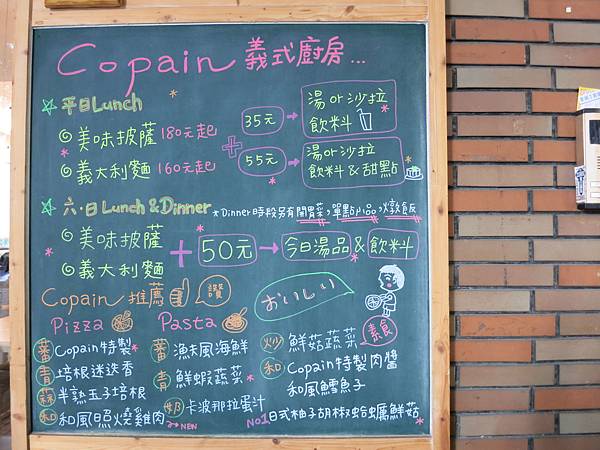 Copain 義式廚房...
平日Lunch
◎美味披薩 180元起
◎義大利麵 160元起
+
35元 → 湯or沙拉
飲料
55元 → 湯or沙拉
飲料&甜點
六.日Lunch&Dinner *Dinner時段另有開胃菜,單點小品,燉飯
◎美味披薩
◎義大利麵
+ 50元 → 今日湯品 & 飲料
Copain推薦 讚
おいしい
Pizza
蕃 Copain特製*
青 培根迷迭香
蒜 半熟玉子培根
和 和風照燒雞肉 NEW
Pasta
蕃 漁夫風海鮮
青 鮮蝦蔬菜*
奶 卡波那拉蛋汁
炒 鮮菇蔬菜 素食
和 Copain特製肉醬
和風鱈魚子
No1 日式柚子胡椒蛤蠣鮮菇*